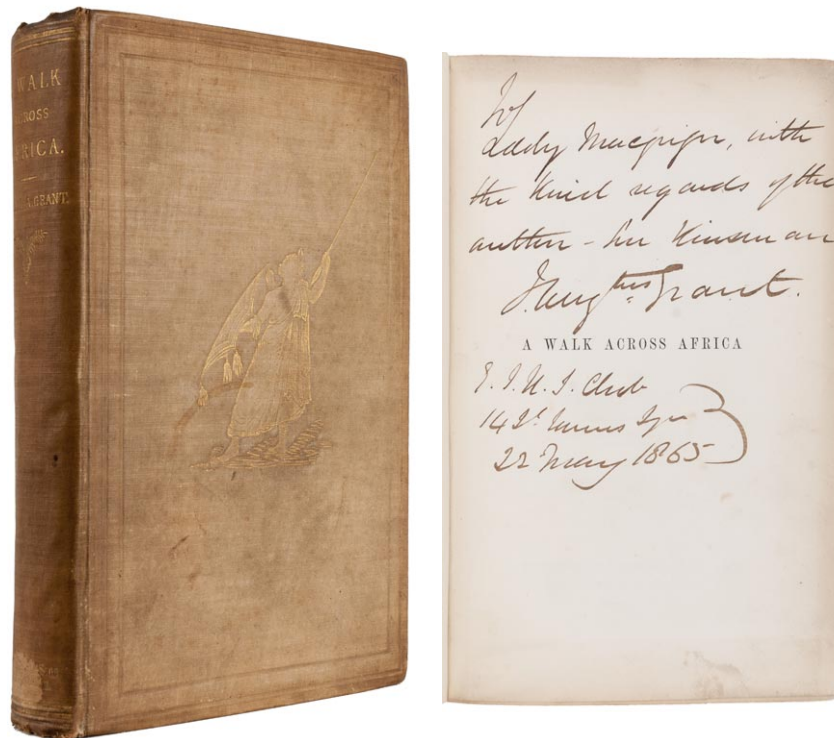 WALK
CROSS
RICA.
GRANT.
To
Lady Macgrigor, with
the kind regards of the
author - her Kinsman
J. Aug.tus Grant.
A WALK ACROSS AFRICA
E. I. U. S. Club
14 St. James Sqr
22 May 1865